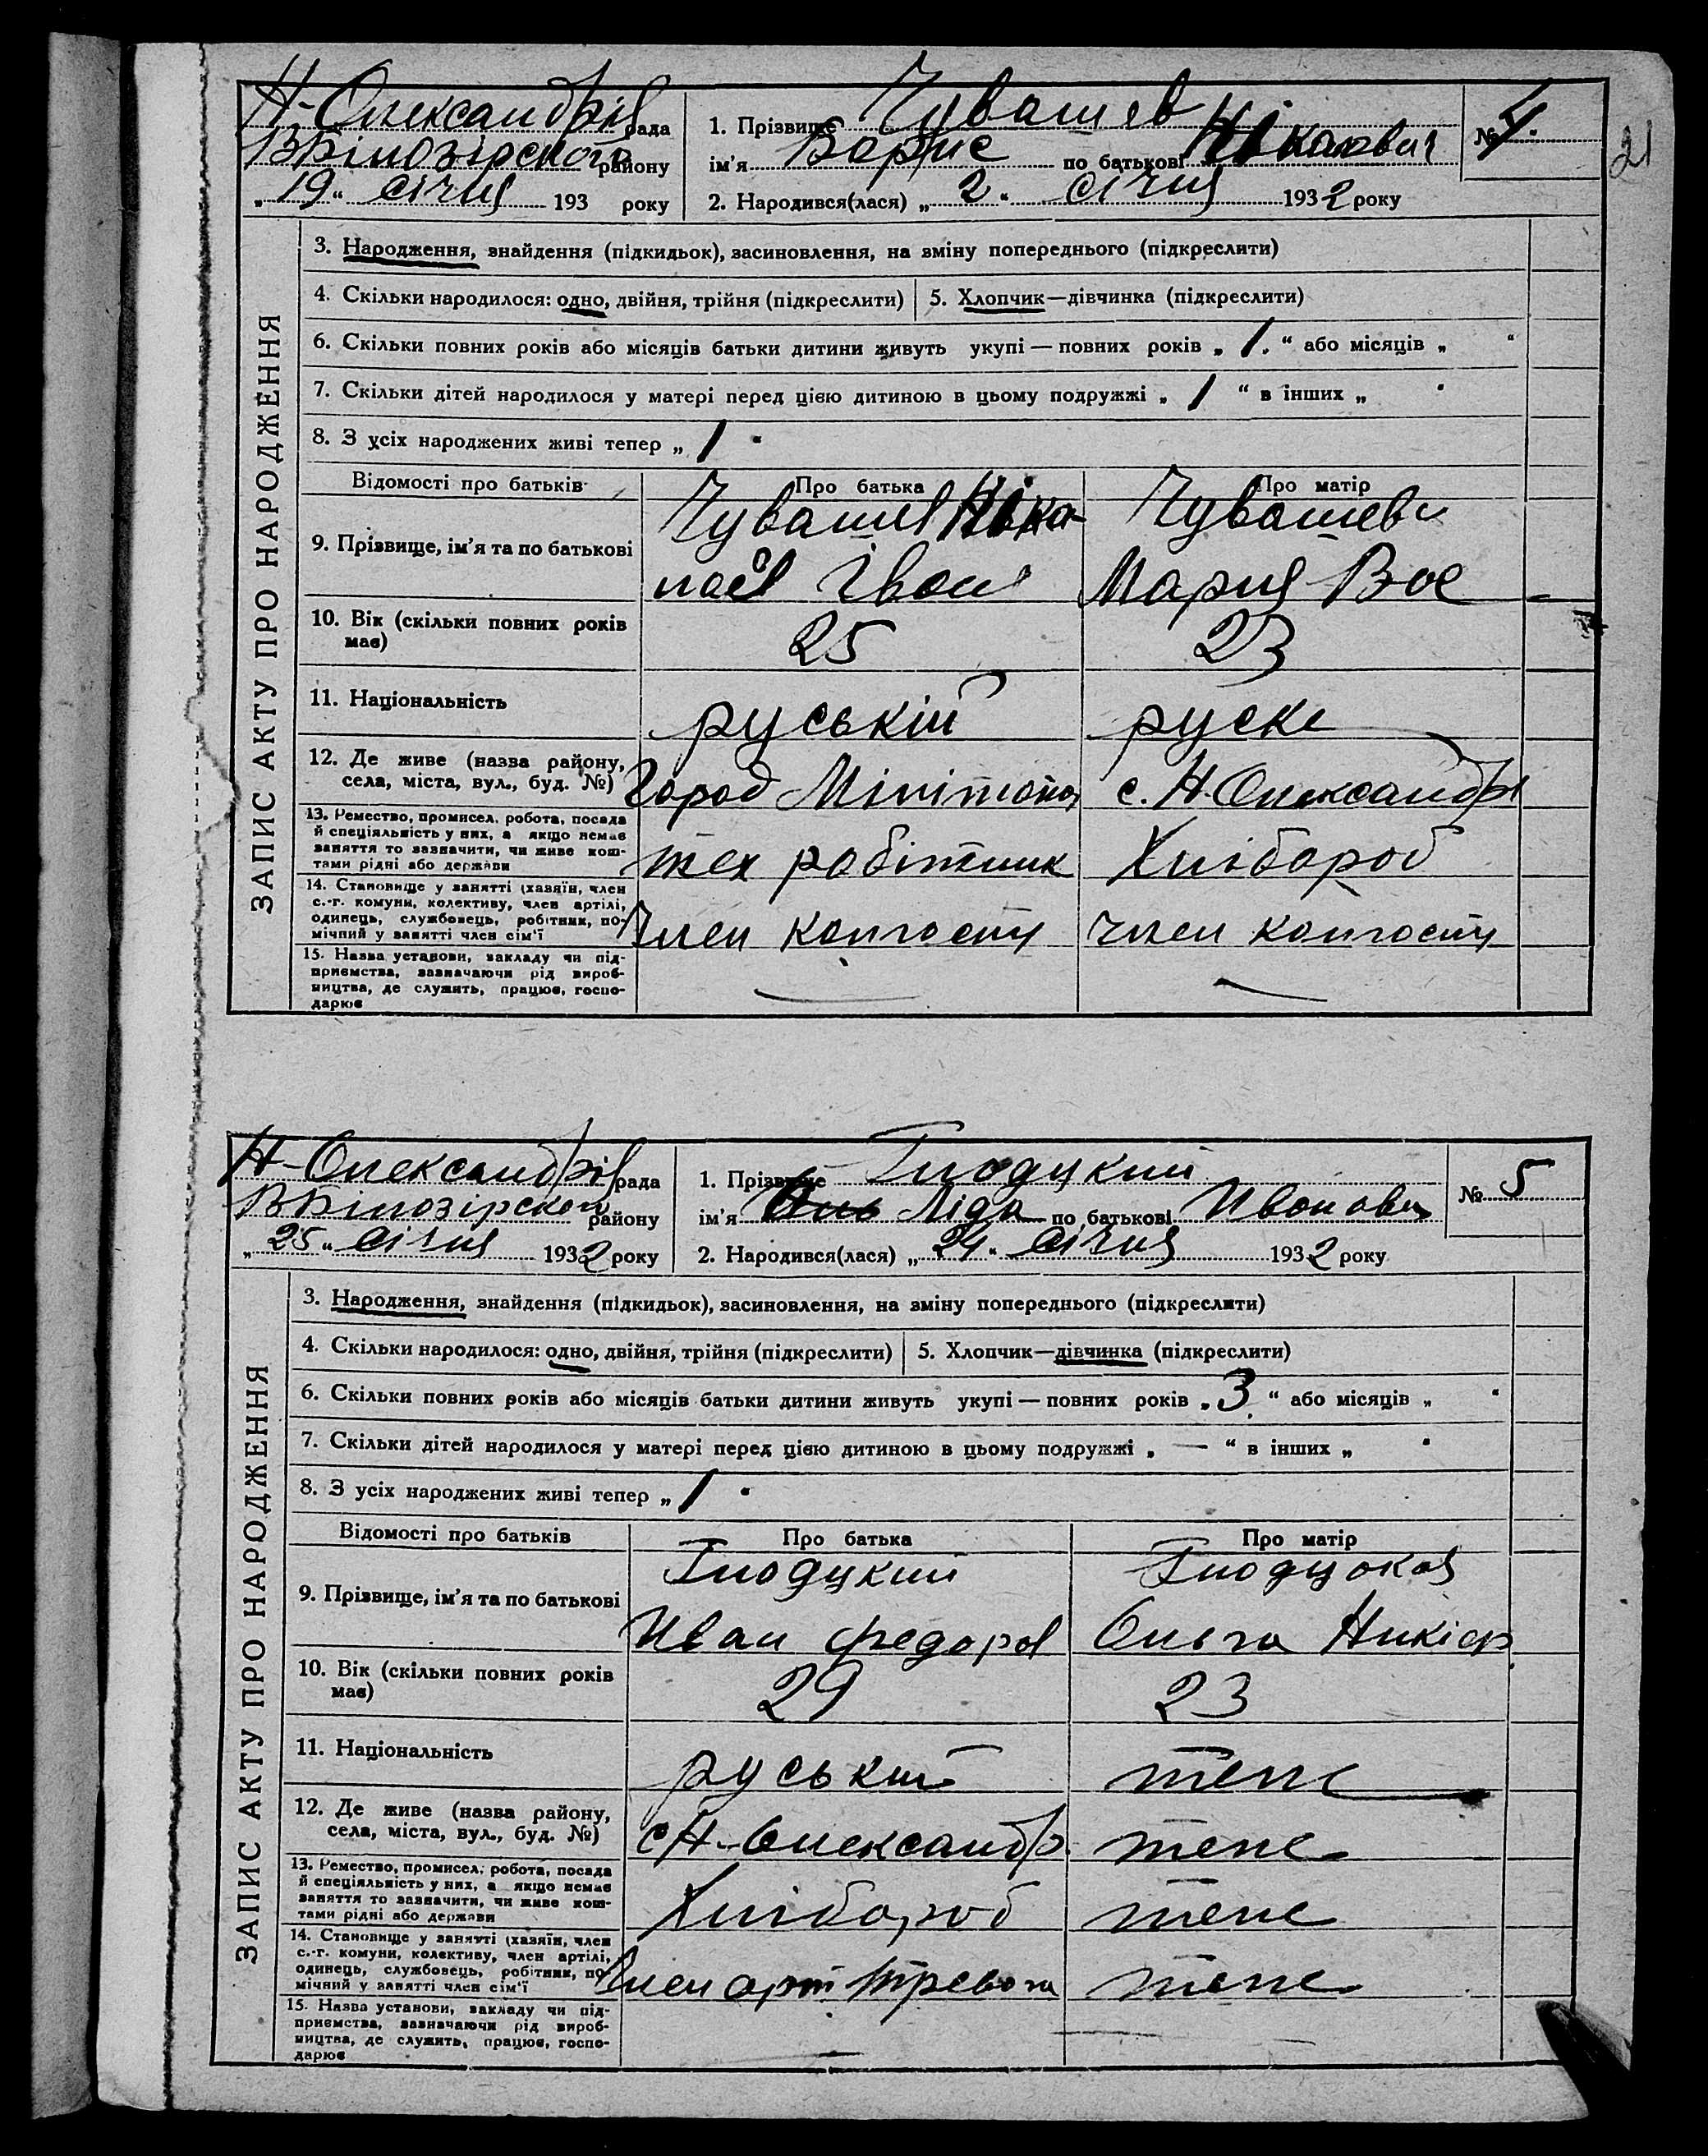 Н-Олександрів рада
ВБілозірського району
„19“ січня 193 року
1. Прізвище Чувашев
ім'я Борис по батькові
2. Народився(лася) „2“ січня 1932 року
№ 4.
21
ЗАПИС АКТУ ПРО НАРОДЖЕННЯ
3. Народження, знайдення (підкидьок), засиновлення, на зміну попереднього (підкреслити)
4. Скільки народилося: одно, двійня, трійня (підкреслити)
5. Хлопчик—дівчинка (підкреслити)
6. Скільки повних років або місяців батьки дитини живуть укупі — повних років „1.“ або місяців „ “
7. Скільки дітей народилося у матері перед цією дитиною в цьому подружжі „1“ в інших „ “
8. З усіх народжених живі тепер „1“
Відомості про батьків
Про батька
Про матір
9. Прізвище, ім'я та по батькові
Чувашев
Іван
Чувашева
Мария Вас
10. Вік (скільки повних років
має)
25
23
11. Національність
руській
руске
12. Де живе (назва району,
села, міста, вул., буд. №)
Город Мілітопол
с. Н. Олександрі
13. Ремество, промисел, робота, посада
й спеціяльність у них, а якщо немає
заняття то зазначити, чи живе кош-
тами рідні або держави
тех робітник
Хлібороб
14. Становище у занятті (хазяїн, член
с.-г. комуни, колективу, член артілі,
одинець, службовець, робітник, по-
мічний у занятті член сім'ї
Член колгоспу
член колгоспу
15. Назва установи, закладу чи під-
приємства, зазначаючи рід вироб-
ництва, де служить, працює, госпо-
дарює
Н-Олександрів рада
ВБілозірского району
„25“ січня 1932 року
1. Прізвище Глодуький
ім'я Ліда по батькові Иванович
2. Народився(лася) „24“ січня 1932 року
№ 5
ЗАПИС АКТУ ПРО НАРОДЖЕННЯ
3. Народження, знайдення (підкидьок), засиновлення, на зміну попереднього (підкреслити)
4. Скільки народилося: одно, двійня, трійня (підкреслити)
5. Хлопчик—дівчинка (підкреслити)
6. Скільки повних років або місяців батьки дитини живуть укупі — повних років „3.“ або місяців „ “
7. Скільки дітей народилося у матері перед цією дитиною в цьому подружжі „—“ в інших „ “
8. З усіх народжених живі тепер „1“
Відомості про батьків
Про батька
Про матір
9. Прізвище, ім'я та по батькові
Иван Федоров
Ольга Никіф
10. Вік (скільки повних років
має)
29
23
11. Національність
руський
теж
12. Де живе (назва району,
села, міста, вул., буд. №)
с Н-Олександр.
теж
13. Ремество, промисел, робота, посада
й спеціяльність у них, а якщо немає
заняття то зазначити, чи живе кош-
тами рідні або держави
Хлібороб
теж
14. Становище у занятті (хазяїн, член
с.-г. комуни, колективу, член артілі,
одинець, службовець, робітник, по-
мічний у занятті член сім'ї
Член арт Тревога
теж
15. Назва установи, закладу чи під-
приємства, зазначаючи рід вироб-
ництва, де служить, працює, госпо-
дарює